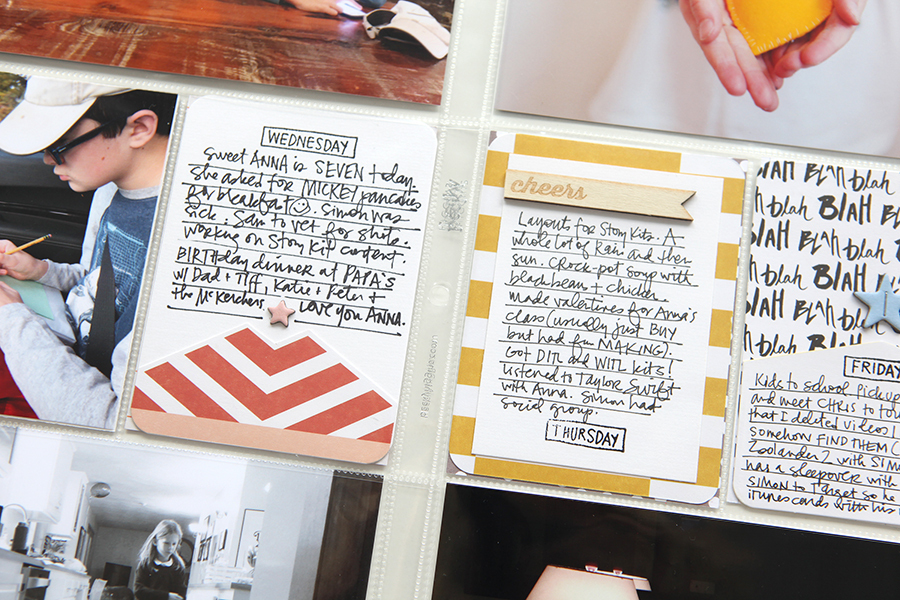 WEDNESDAY
Sweet ANNA is SEVEN today.
She asked for MICKEY pancakes
for breakfast☺. Simon was
sick. Sam to vet for shots.
working on Story Kit content.
BIRTHday dinner at PAPA's
w/ Dad + TIFF, Katie + Pete +
the McKerchers. LOVE you ANNA.
cheers
Layouts for Story Kits. A
whole lot of Rain and then
sun. Crock-pot soup with
black bean + chicken.
made valentines for Anna's
class (usually just BUY
but had fun MAKING).
Got DITL and WITL kits!
Listened to Taylor Swift
with Anna. Simon had
social group.
THURSDAY
BLAH BLAH blah
blah BLAH blah
BLAH blah BLAH
blah BLAH blah
BLAH blah BLAH
blah BLAH
FRIDAY
Kids to school. Pick up
and meet CHRIS to
that I deleted video!
somehow FIND THEM
Zoolander 2 with
has a sleepover with
SIMON to Target so he
itunes cards with his